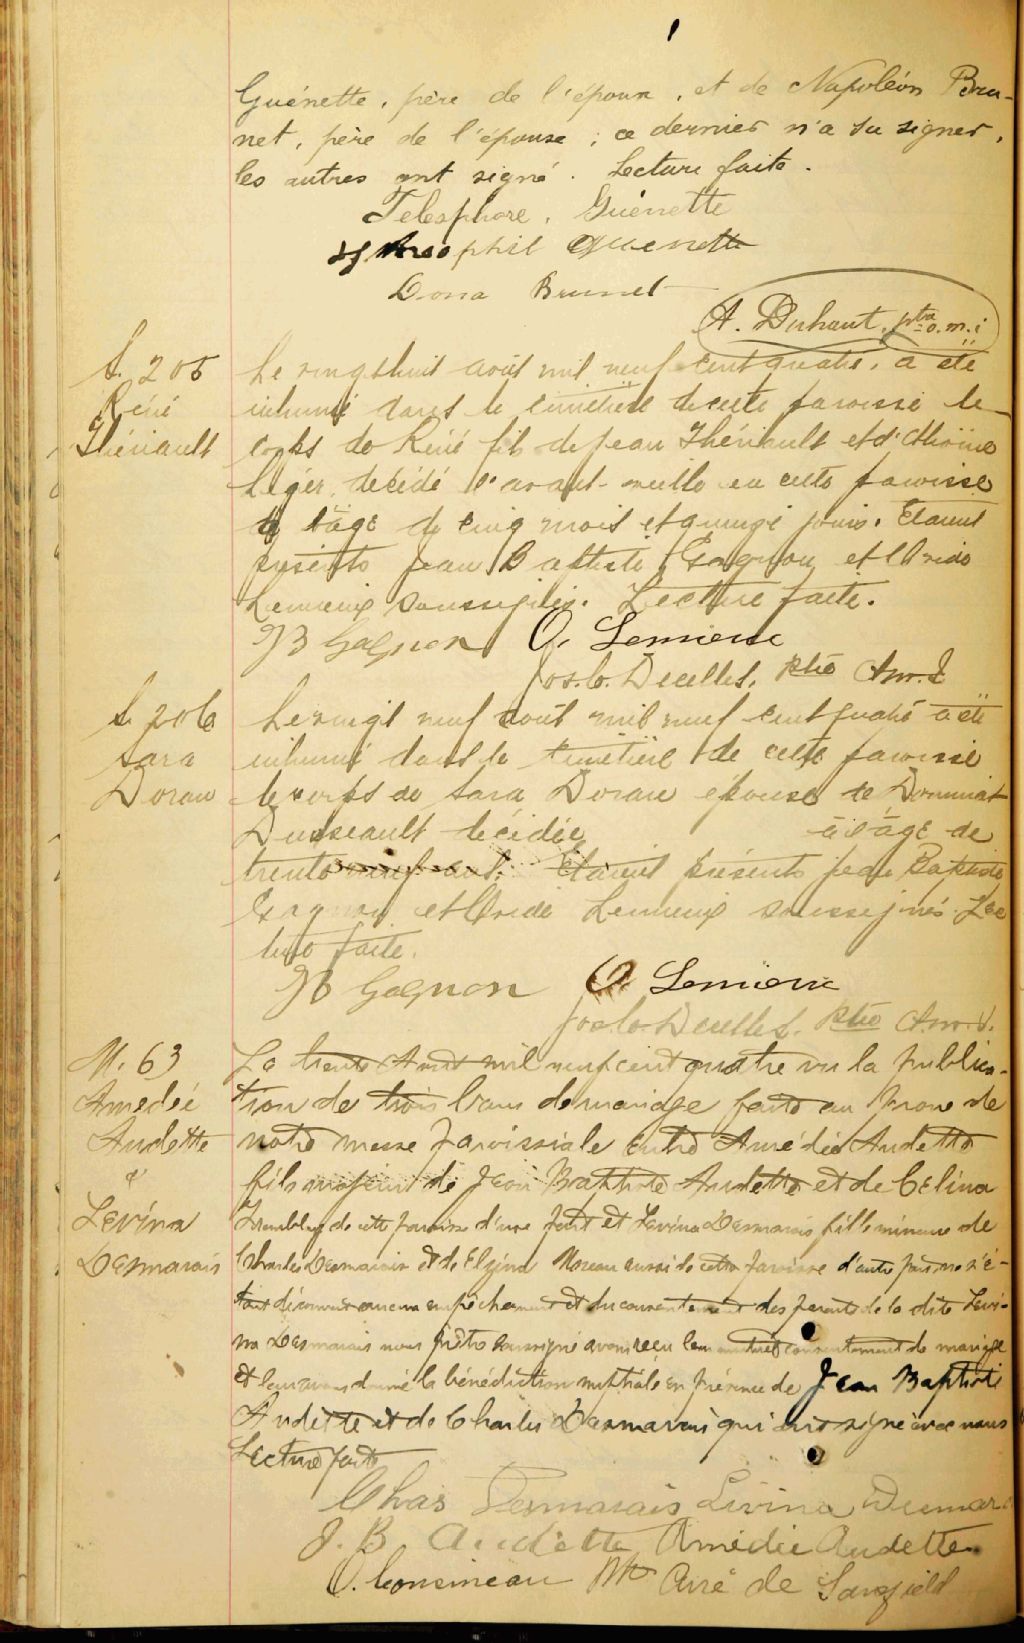 Guénette, père de l'époux, et de Napoléon Bru-
net, père de l'épouse ; ce dernier n'a su signer,
les autres ont signé. Lecture faite.
Telesphore. Guénette
phil Guenette
Dona Brunet
A. Duhaut, ptre o.m.i
S. 205
René
Thériault
Le vingthuit août mil neuf cent quatre, a été
inhumé dans le cimetière de cette paroisse le
corps de René fils de Jean Thériault et d'
Léger, décédé l'avant-veille en cette paroisse
à l'âge de cinq mois et quinze jours. Etaient
présents Jean Baptiste Gagnon et Ovide
Lemieux soussignés. Lecture faite.
JB Gagnon O. Lemieux
Jos. C. Decelles, ptre
S. 206
Sara
Doran
Le vingt neuf août mil neuf cent quatre a été
inhumé dans le cimetière de cette paroisse
le corps de Sara Doran épouse de
Dusseault décédée à l'âge de
trente neuf ans. Etaient présents Jean Baptiste
Gagnon et Ovide Lemieux soussignés. Lec
ture faite.
JB Gagnon O. Lemieux
Jos. C. Decelles. ptre
M. 63
Amédée
Audette
&
Levina
Desmarais
Le trente Août mil neuf cent quatre vu la publica-
tion de trois bans de mariage faite au prone de
notre messe paroissiale entre Amédée Audette
fils majeur de Jean Baptiste Audette et de Celina
Tremblay de cette paroisse d'une part et Levina Desmarais fille mineure de
Charles Desmarais et de Elzina Moreau aussi de cette paroisse d'autre part, ne s'é-
tant découvert aucun empêchement et du consentement des parents de la dite Levi-
na Desmarais nous prêtre soussigné avons reçu leur mutuel consentement de mariage
et leur avons donné la bénédiction nuptiale en présence de Jean Baptiste
Audette et de Charles Desmarais qui ont signé avec nous
Lecture faite
Chas Desmarais Livina
J. B. Audette Amédée Audette
O. Cousineau Ptre Curé de Sarsfield